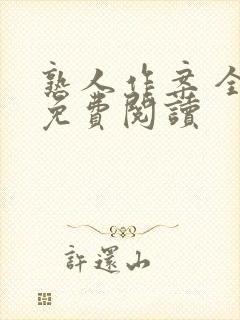 熟人作案 全
免費閱讀
許還山